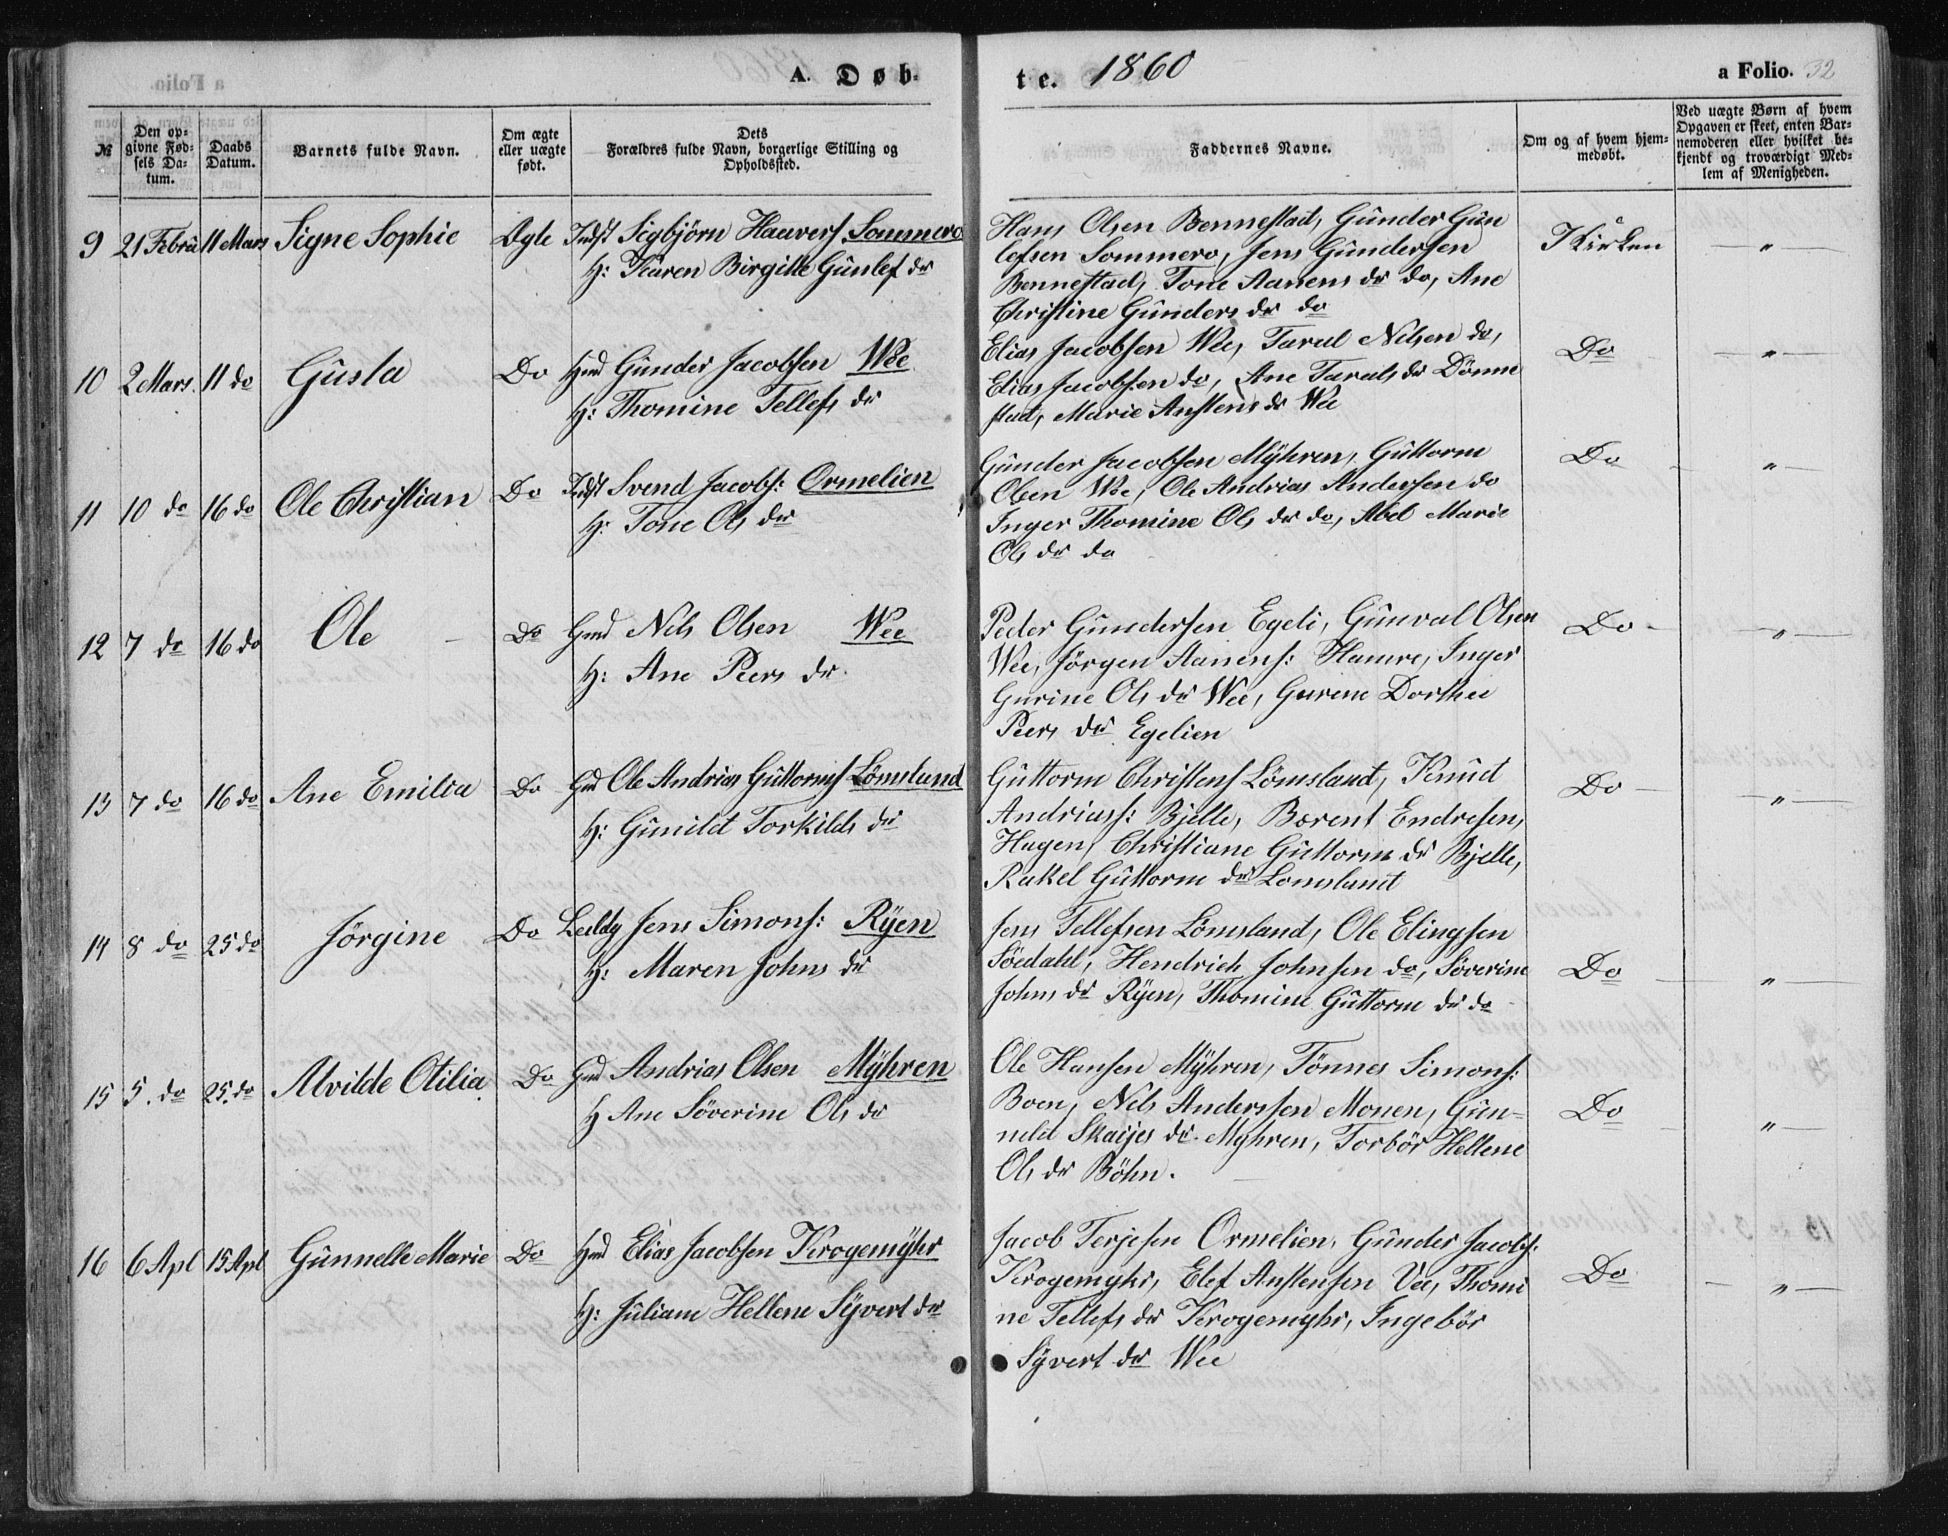 A. Døb-
te. 1860
a Folio. 32
№
Den op-
givne Fød-
sels Da-
tum.
Daabs
Datum.
Barnets fulde Navn.
Om ægte
eller uægte
født.
Dets
Forældres fulde Navn, borgerlige Stilling og
Opholdssted.
Faddernes Navne.
Om og af hvem hjem-
medøbt.
Ved uægte Børn af hvem
Opgaven er skeet, enten Bar-
nemoderen eller hvilket be-
kjendt og troværdigt Med-
lem af Menigheden.
9 21 Febru 11 Mars Signe Sophie Ægte Indst Sigbjörn Haavers Sommero
H: Karen Birgitte Gunlef dr
Hans Olsen Bennestad, Gunder Gun
lefsen Sommero, Jens Gundersen
Bennestad, Tone Aanens dr do, Ane
Christine Gunders dr do
I Kirken "
10 2 Mars. 11 do Gusta Do Hmd Gunder Jacobsen Wee
H: Thomine Tellefs dr
Elias Jacobsen Wee, Tarul Nilsen do,
Elias Jacobsen do, Ane Taruls dr Dönne
stad, Marie Anstens dr Wee
Do "
11 10 do 16 do Ole Christian Do Indst Svend Jacobs: Ormelien
H: Tone Ols dr
Gunder Jacobsen Mÿhren, Guttorm
Olsen Wee, Ole Andrias Andersen do
Inger Thomine Ols dr do, Abel Marie
Ols dr do
Do "
12 7 do 16 do Ole Do Gmd Nils Olsen Wee
H: Ane Peers dr.
Peder Gundersen Egeli, Gunval Olsen
Wee, Jörgen Aanens: Hamre, Inger
Gurine Ols dr Wee, Gurine Dorthee
Peers dr Egelien
Do "
13 7 do 16 do Ane Emilia Do Gmd Ole Andrias Guttorms Lömsland
H: Gunild Torkilds dr
Guttorm Christens Lömsland, Knud
Andriass: Bjelle, Bærent Endresen,
Hagen, Christiane Guttorm dr Bjelle,
Rakel Guttorm dr Lomsland
Do "
14 8 do 25 do Jörgine Do Leildg Jens Simons: Rÿen
H: Maren Johns dr
Jens Tellefsen Lömsland, Ole Elingsen
Söedahl, Hendrich Johnsen do, Söverine
Johns dr Rÿen, Thomine Guttorm dr do
Do "
15 5. do 25. do Alvilde Otilia Do Gmd Andrias Olsen Mÿhren
H Ane Söverine Ols dr
Ole Hansen Mÿhren, Tönnes Simons:
Boen, Nils Anderssen Monen, Gun-
neld Skaijes dr. Mÿhren, Torbör Hellene
Ols dr Böhn.
Do "
16 6 Apl 15 Apl Gunnelle Marie Do Hmd Elias Jacobsen Krogemÿhr
H: Juliane Hellene Sÿvert dr
Jacob Terjesen Ormelien, Gunder Jacobs:
Krogemyhr, Elef Anstensen Vee, Thomi
ne Tellefs dr Krogemyhr, Ingebör
Sÿvert dr Wee
Do "